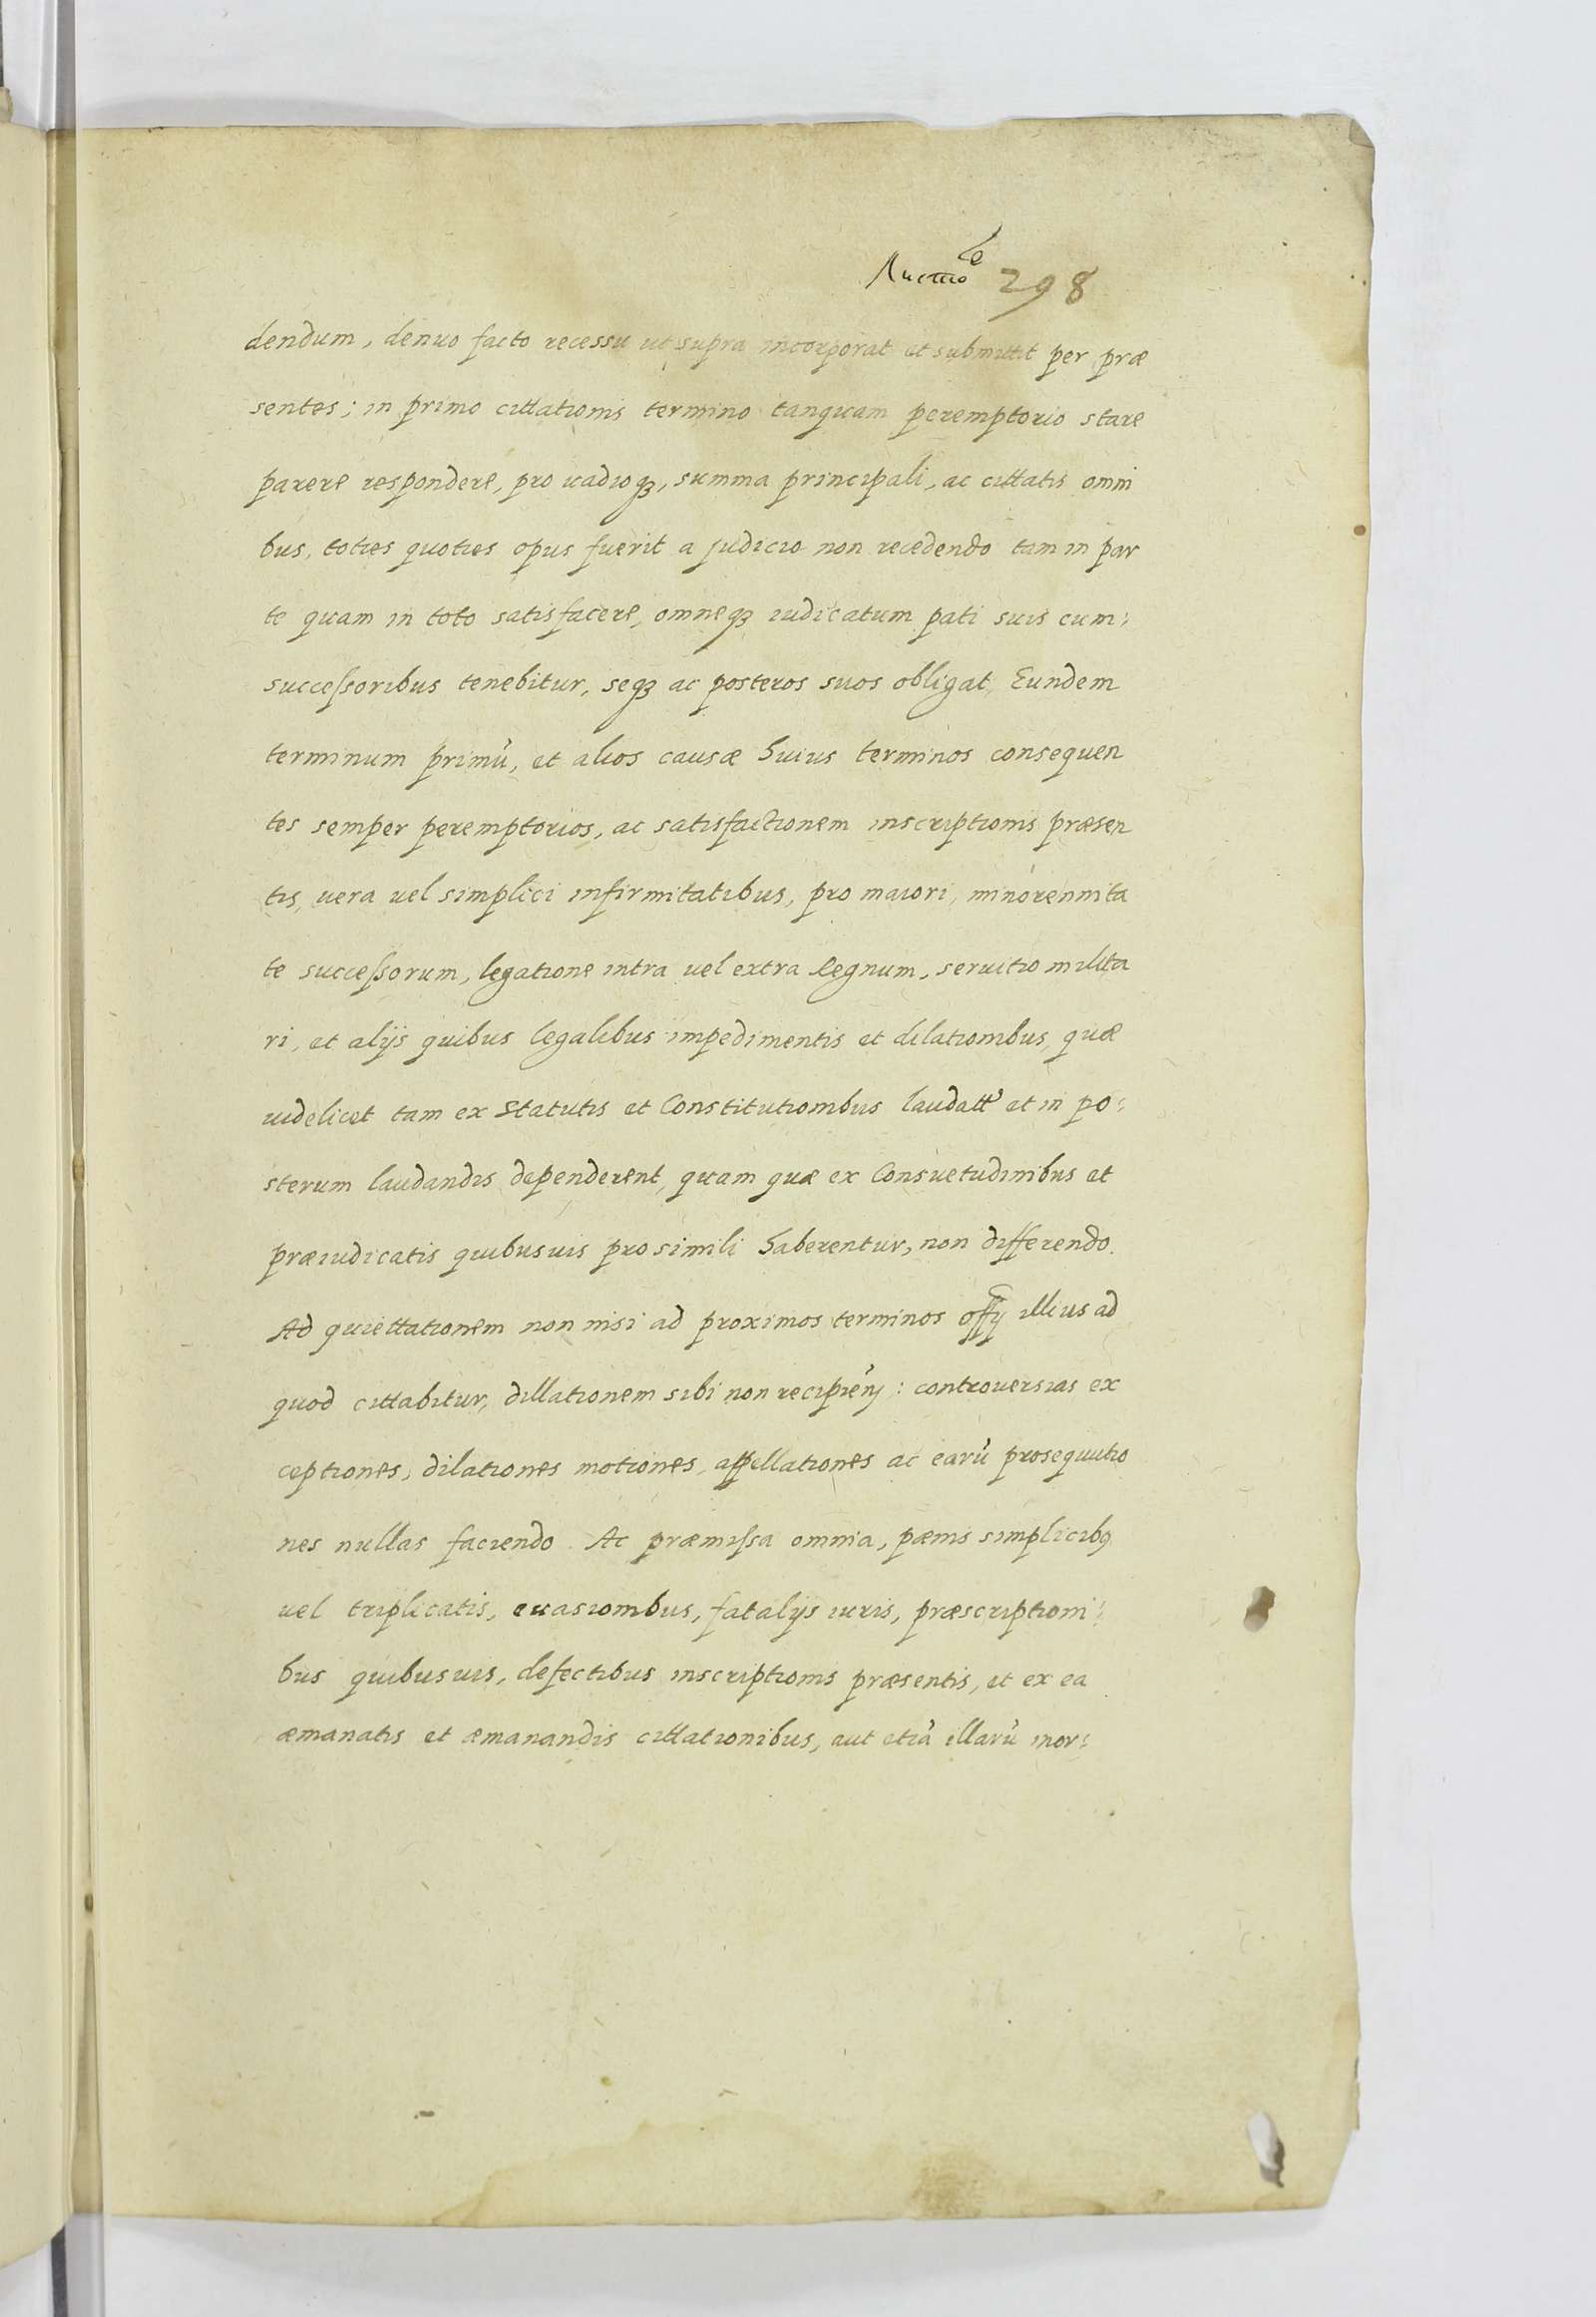 298
dendum, denuo facto recessu ut supra incorporat et submittit per præ
sentes; in primo cittationis termino tanquam peremptorio stare
parere respondere, pro uadioqꝫ, summa principali, ac cittatis omni
bus, toties quoties opus fuerit a judicio non recedendo tam in par
te quam in toto satisfacere, omneqꝫ iudicatum pati suis cum:
succeſsoribus tenebitur, seqꝫ ac posteros suos obligat, Eundem
terminum primũ, et alios causæ huius terminos consequen
tes semper peremptorios, ac satisfactionem inscriptionis præsen
tis, uera uel simplici infirmitatibus, pro maiori, minorennita
te succeſsorum, legatione intra uel extra Regnum, seruitio milita
ri, et alijs quibus legalibus impedimentis et dilationibus, quæ
uidelicet tam ex Statutis et Constitutionibus laudatt' et in po:
sterum laudandis dependerent, quam quæ ex Consuetudinibus et
præiudicatis quibusuis pro simili haberentur, non differendo.
Ad quiettationem non nisi ad proximos terminos offy illius ad
quod cittabitur, dillationem sibi non recipien̄: controuersias ex
ceptiones, dilationes motiones, appellationes ac earũ prosequutio
nes nullas faciendo. Ac præmiſsa omnia, pænis simplicibꝯ
uel triplicatis, euasionibus, fatalijs iuris, præscriptioni:
bus quibusuis, defectibus inscriptionis præsentis, et ex ea
æmanatis et æmanandis cittationibus, aut etiã illarũ inor: